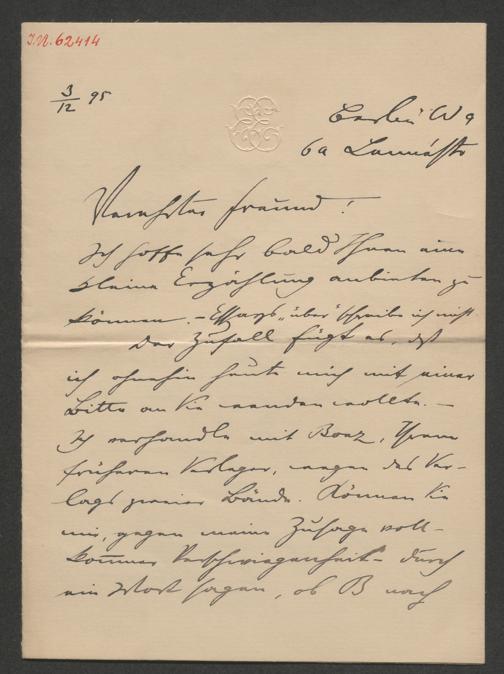 I.N. 62414
3/12 95
Berlin W 9
6a Lennéstr
Verehrter Freund!
Ich hoffe sehr bald Ihnen eine
kleine Erzählung anbieten zu
können. – Essays „über" schreibe ich nicht.
Der Zufall fügt es, daß
ich ohnehin heute mich mit einer
Bitte an Sie wenden wollte. –
Ich verhandle mit Bonz, Ihrem
früheren Verleger, wegen des Ver-
lags zweier Bände. Können Sie
mir, gegen meine Zusage voll-
kommener Verschwiegenheit – durch
ein Wort sagen, ob B nach